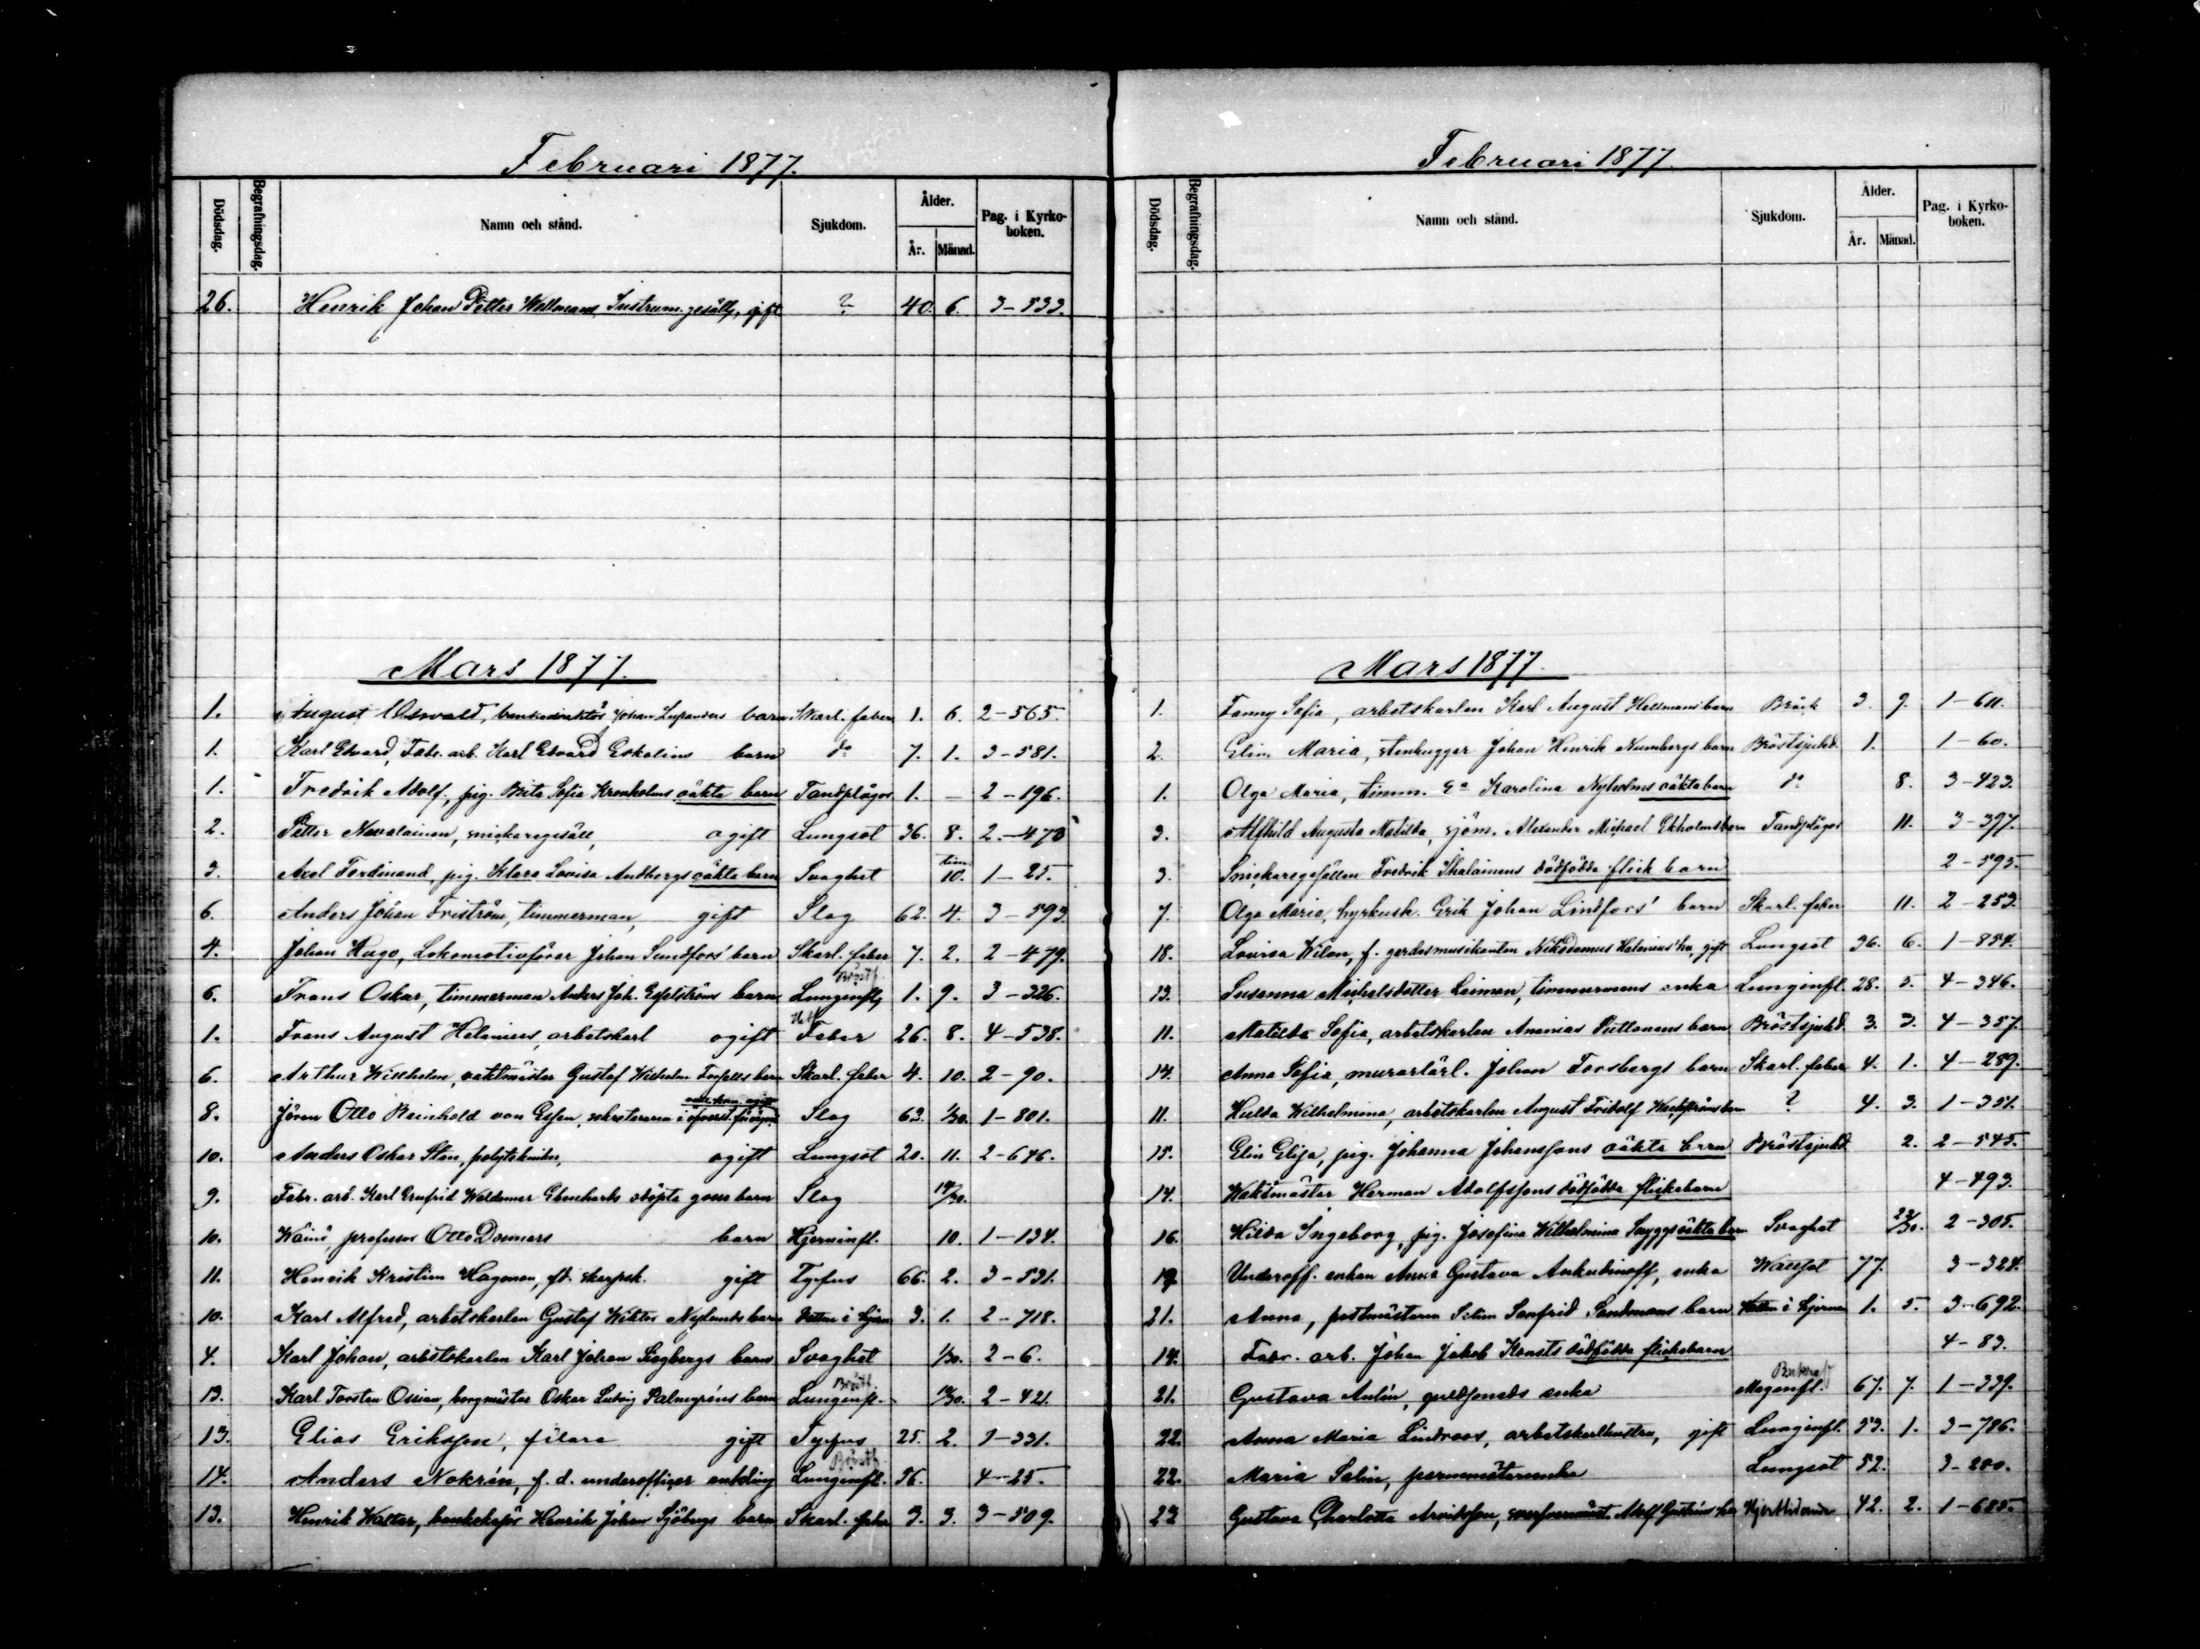 Februari 1877.
Dödsdag. Begrafningsdag. Namn och stånd. Sjukdom. Ålder. År. Månad. Pag. i Kyrkoboken.
26. Henrik Johan Petter Wellmans Instrum. gesäll, gift ? 40. 6. 3-533.
Mars 1877.
1. August Oswald, Johan barn Skarl. feber 1. 6. 2-565.
1. Karl Edvard, Fabr. arb. Karl Edvard Eskolins barn do 7. 1. 3-581.
1. Fredrik Adolf, pig. Brita Sofia Kronholms oäkta barn Tandplågor 1. — 2-196.
2. Petter Navalainen, snickaregesäll, ogift Lungsot 36. 8. 2-470
3. Axel Ferdinand, pig. Klara Lovisa Andbergs oäkta barn Svaghet tim. 10. 1-25.
6. Anders Johan Friström, timmerman, gift Slag 62. 4. 3-593.
4. Johan Hugo, Lokomotivförer Johan Sundfors' barn Skarl. feber 7. 2. 2-479.
6. Frans Oskar, timmerman Anders Joh. barn Lunginfl. 1. 9. 3-326.
1. Frans August Helenius, arbetskarl ogift Feber 26. 8. 4-538.
6. Arthur Willhelm, vaktmäster Gustaf Wilhelm barn Skarl. feber 4. 10. 2-90.
8. Jören Otto Reinhold von Essen, sekreteraren i Slag 63. 1/30. 1-801.
10. Anders Oskar Sten, polytekniker, ogift Lungsot 20. 11. 2-646.
9. Fabr. arb. Karl Ernfrid Waldemar Ekenharts odöpta gossebarn Slag 14/30.
10. Wäinö, professor Otto Donners barn Hjerninfl. 10. 1-134.
11. Henrik Kristian Hagman, fd. skarpsk. gift Tyfus 66. 2. 3-531.
10. Karl Alfred, arbetskarlen Gustaf Wiktor Nylunds barn Vatten i hjern 3. 1. 2-718.
4. Karl Johan, arbetskarlen Karl Johan Skogbergs barn Svaghet 1/30. 2-6.
13. Karl Torsten Ossian, borgmästar Oskar Ludvig Palmgréns barn Lunginfl. 2-421.
13. Elias Eriksson, filare gift Tyfus 25. 2. 3-331.
14. Anders Nokrén, f. d. underofficer enkling Lunginfl. 76. 4-25.
13. Henrik Walter, Henrik Johan Sjöbergs barn Skarl. feber 3. 3. 3-509.
Februari 1877.
Dödsdag. Begrafningsdag. Namn och stånd. Sjukdom. Ålder. År. Månad. Pag. i Kyrkoboken.
Mars 1877.
1. Fanny Sofia, arbetskarlen Karl August Hellmans barn Bråck 3. 9. 1-611.
2. Elin Maria, stenhugger Johan Henrik Numbergs barn Bröstsjukd. 1. 1-60.
1. Olga Maria, timm. Ea Karolina Nyholms oäkta barn do 8. 3-423.
3. Alfhild Augusta Matilda, sjöm. Alexander Michael Ekholms barn Tandplågor 11. 3-397.
3. Snickaregesällen Fredrik Ihalainens dödfödda flick barn 2-595.
7. Olga Maria, hyrkusk. Erik Johan Lindfors' barn Skarl. feber 11. 2-253.
18. Lovisa Wilen, f. gardesmusikanten Nikodemus Helenius' hu, gift Lungsot 36. 6. 1-854.
13. Susanna Michelsdotter Laiman, timmermans enka Lunginfl. 28. 5. 4-346.
11. Matilda Sofia, arbetskarlen Ananias Puttonens barn Bröstsjukd. 3. 3. 4-357.
14. Anna Sofia, murarlärl. Johan Forsbergs barn Skarl. feber 4. 1. 4-289.
11. Hulda Wilhelmina, arbetskarlen August Fridolf barn ? 4. 3. 1-351.
15. Elin Elisa, pig. Johanna Johanssons oäkta barn Bröstsjukd 2. 2-545.
14. Waktmäster Herman Adolfssons dödfödda flickebarn 4-493.
16. Hilda Ingeborg, pig. Josefina Wilhelmina Snyggs oäkta barn Svaghet 22/30. 2-305.
19. Underoff. enkan Anna Gustava Ankudinoff, enka Wattsot 77. 3-324.
21. Anna, postmästaren Selim Sanfrid Sandmans barn Vatten i hjernan 1. 5. 3-692.
14. Fabr. arb. Johan Jakob Konsts dödfödda flickebarn 4-83.
21. Gustava Antin, guldsmeds enka Magenfl. 67. 7. 1-339.
22. Anna Maria Lindroos, arbetskarlhustru, gift Lunginfl. 53. 1. 3-786.
22. Maria Salin, enka Lungsot 52. 3-200.
23 Gustava Charlotta Arvidsson, Adolf 42. 2. 1-685.